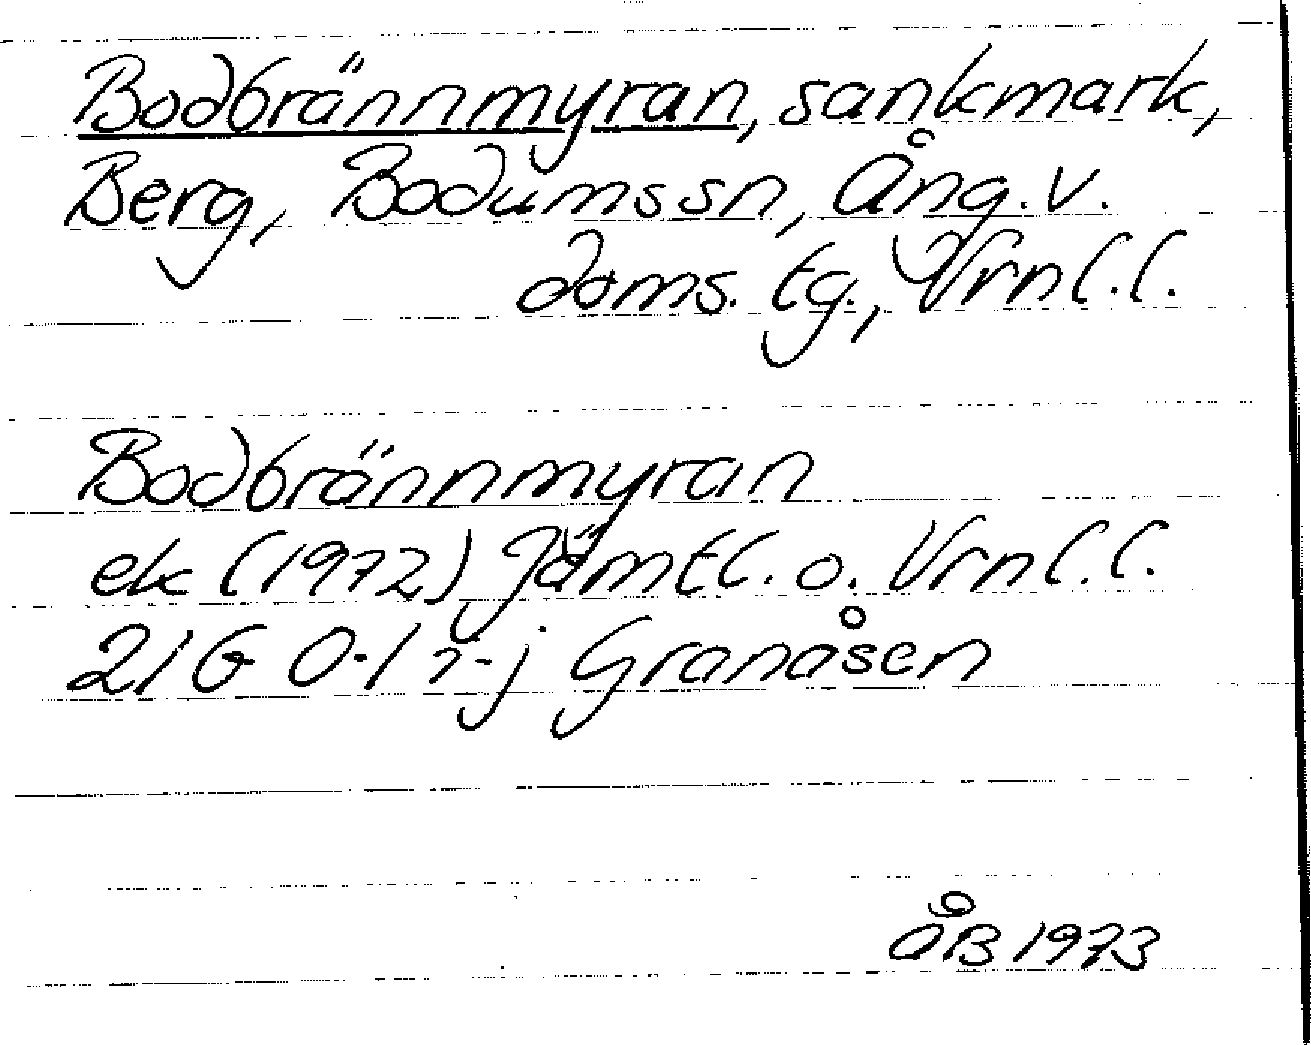 Bodbrännmyran, sankmark,
Berg, Bodumssn, Ång.v.
doms. tg., Vrnl.l.
Bodbrännmyran
ek (1972) Jämtl. o. Vrnl.l.
21G 0-1 i-j Granåsen
ÅB 1973